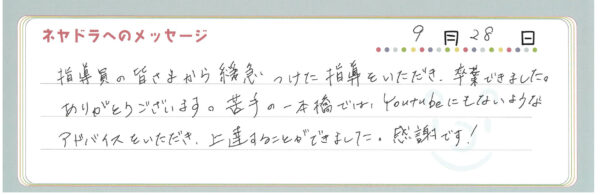 ネヤドラへのメッセージ
9月28日
指導員の皆さまから緩急つけた指導をいただき、卒業できました。
ありがとうございます。苦手の一本橋では、Youtubeにもないような
アドバイスをいただき、上達することができました。感謝です!